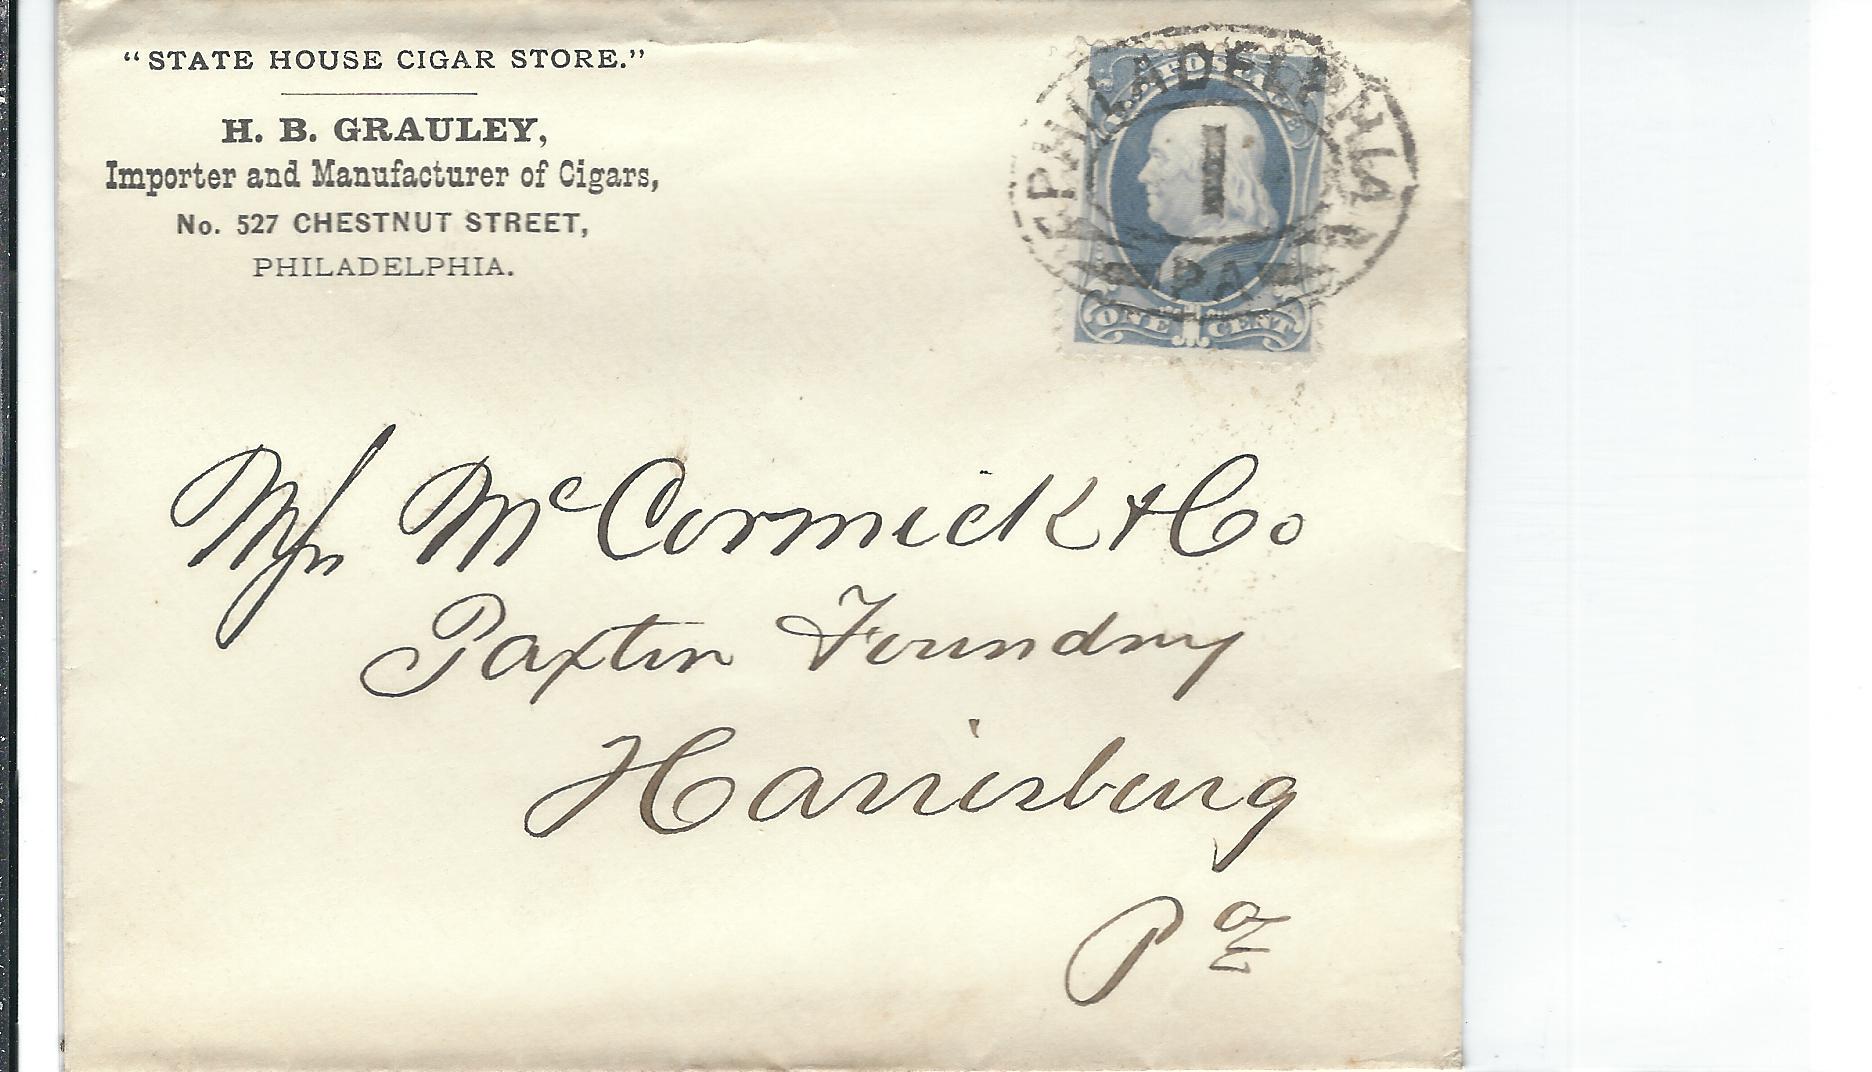 "STATE HOUSE CIGAR STORE."
H. B. GRAULEY,
Importer and Manufacturer of Cigars,
No. 527 CHESTNUT STREET,
PHILADELPHIA.
U.S. POSTAGE
ONE 1 CENT
PHILADELPHIA
1
PA
McCormick & Co
Paxton Foundry
Harrisburg
Pa